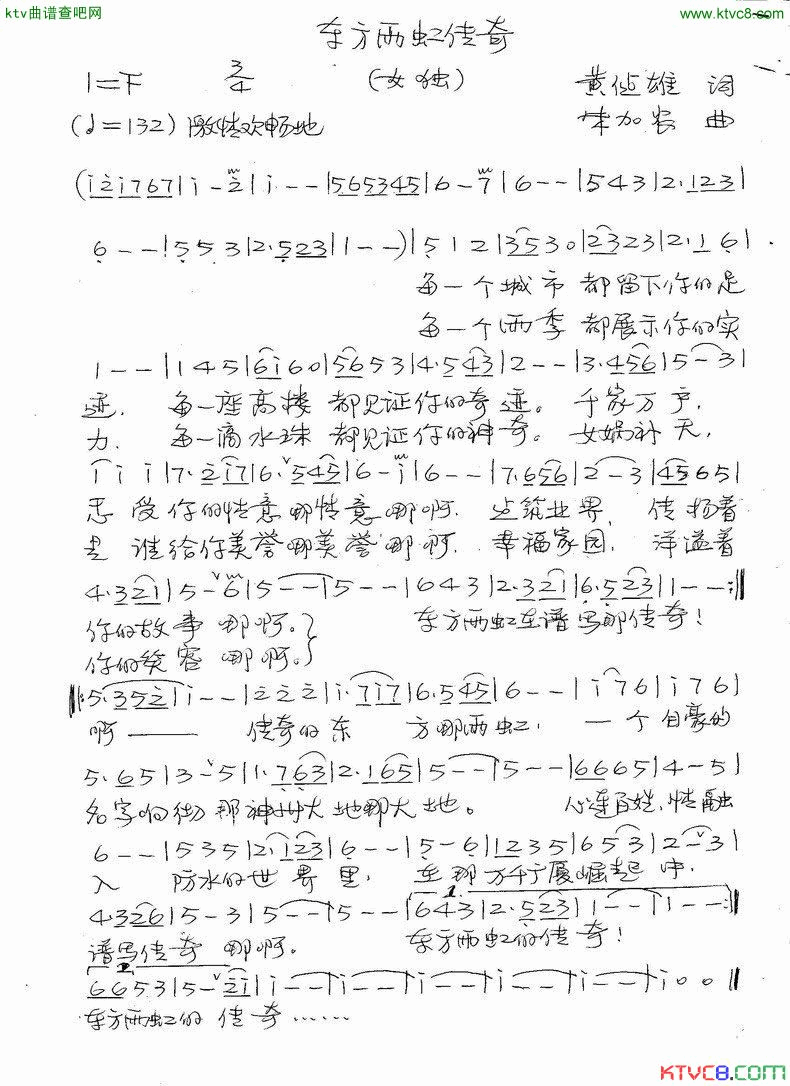 ktv曲谱查吧网
www.ktvc8.com
东方雨虹传奇
1=F 3/4 (女独) 黄 雄 词
(♩=132) 激情欢畅地 加农 曲
(i̇ 2̇ i̇ 7 6 7 | i̇ - 2̇ | i̇ - - | 5 6 5 3 4 5 | 6 - 7 | 6 - - | 5 4 3 | 2· 1 2 3 |
6 - - | 5 5 3 | 2· 5 2 3 | 1 - -) | 5 1 2 | 3 5 3 0 | 2 3 2 3 | 2· 1 6 |
每一个城市 都留下你的足
每一个雨季 都展示你的实
1 - - | 1 4 5 | 6 i̇ 6 0 | 5 6 5 3 | 4· 5 4 3 | 2 - - | 3· 4 5 6 | 5 - 3 |
迹. 每一座高楼 都见证你的奇迹。 千家万户,
力. 每一滴水珠 都见证你的神奇。 女娲补天,
i̇ i̇ i̇ | 7· 2̇ i̇ 7 | 6· 5 4 5 | 6 - i̇ | 6 - - | 7· 6 5 6 | 2 - 3 | 4 5 6 5 |
受你的情意哪情意哪啊. 建筑业界, 传扬着
是 谁给你美誉哪美誉哪啊. 幸福家园, 洋溢着
4· 3 2 1 | 5 - 6 | 5 - - | 5 - - | 6 4 3 | 2· 3 2 1 | 6· 5 2 3 | 1 - - :‖
你的故事 哪啊。} 东方雨虹在谱写那传奇!
你的笑容 哪啊。}
‖: 5· 3 5 2̇ | i̇ - - | 2̇ 2̇ 2̇ | i̇· 7 i̇ 7 | 6· 5 4 5 | 6 - - | i̇ 7 6 | i̇ 7 6 |
啊—— 传奇的东 方哪雨虹, 一个自豪的
5· 6 5 | 3 - 5 | 1· 7 6 3 | 2· 1 6 5 | 5 - - | 5 - - | 6 6 6 5 | 4 - 5 |
名字响彻那神州大地哪大地。 心连百姓,情融
6 - - | 5 3 5 | 2· 1 2 3 | 6 - - | 5 - 6 | 1 2 3 5 | 6 5 3 | 2 - 3 |
入 防水的世界里, 在那万千广厦崛起中,
4· 3 2 6 | 5 - 3 | 5 - - | 5 - - | 1. 6 4 3 | 2· 5 2 3 | 1 - - | 1 - - :‖
谱写传奇 哪啊。 东方雨虹的传奇!
2. 6 6 5 3 | 5 - 2̇ i̇ | i̇ - - | i̇ - - | i̇ - - | i̇ - - | i̇ - - | i̇ 0 0 ‖
东方雨虹的 传奇……
KTVC8.COM